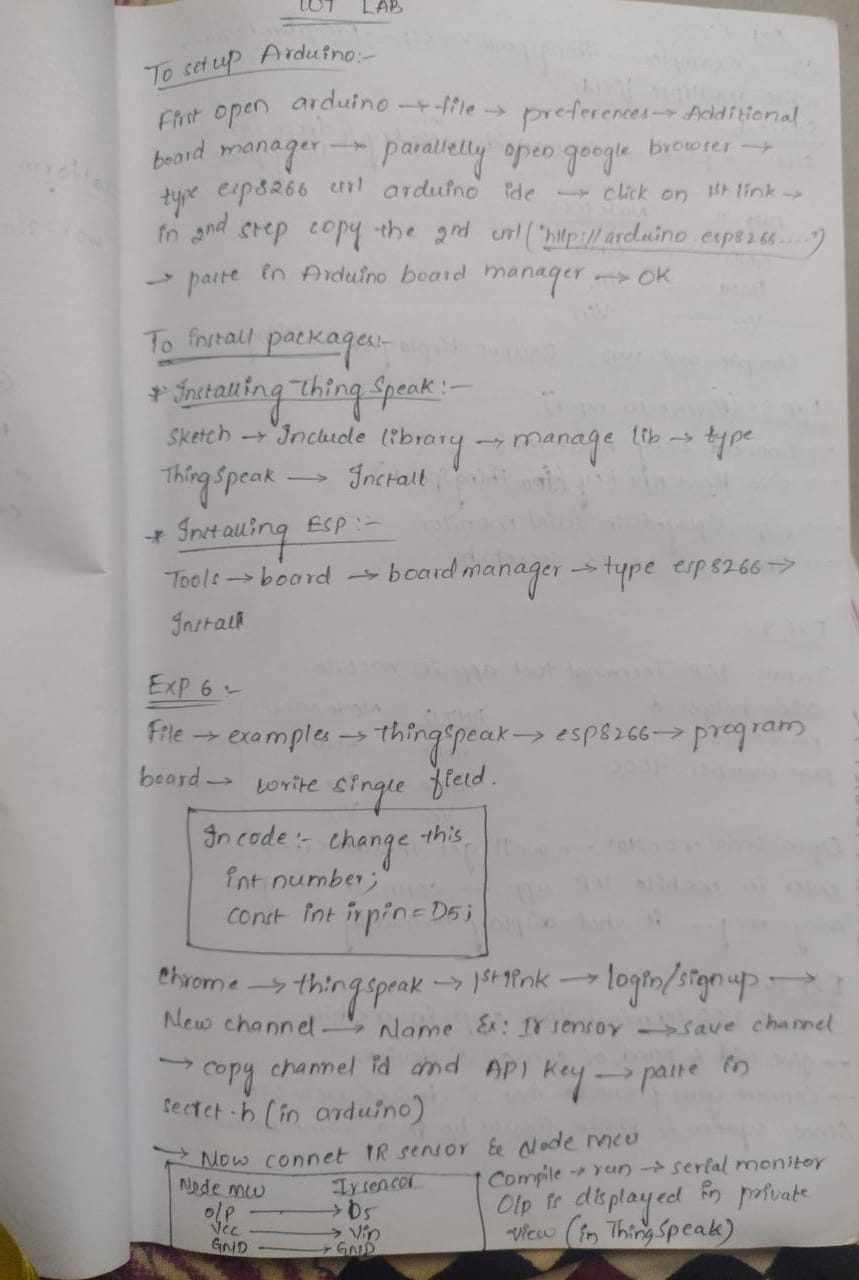 IOT LAB
To setup Arduino:-
First open arduino → file → preferences → Additional
board manager → parallelly open google browser →
type esp8266 url arduino ide → click on 1st link →
in 2nd step copy the 2nd url ("http://arduino.esp8266.....")
→ paste in Arduino board manager → OK
To install packages:-
* Installing Thing Speak :-
Sketch → Include library → manage lib → type
ThingSpeak → Install
* Installing ESP :-
Tools → board → board manager → type esp8266 →
Install
Exp 6 :-
File → examples → thingspeak → esp8266 → program
board → write single field.
In code :- change this
int number;
const int irpin = D5;
Chrome → thingspeak → 1st link → login/signup →
New channel → Name Ex: Ir sensor → save channel
→ copy channel id and API key → paste in
secret.h (in arduino)
→ Now connet IR sensor & Node mcu
Node mcu Ir sensor
O/P → D5
Vcc → Vin
GND → GND
Compile → run → serial monitor
O/p is displayed in private
view (in ThingSpeak)